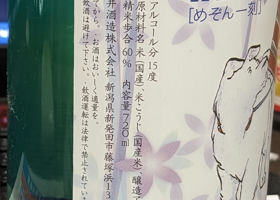 [めぞん一刻]
アルコール分 15度
原材料名 米(国産)、米こうじ(国産米)、醸造
精米歩合 60% 内容量 720ml
井酒造株式会社 新潟県新発田市藤塚浜13
てから。お酒はおいしく適量を。
飲酒は避けて下さい。飲酒運転は法律で禁止されてい